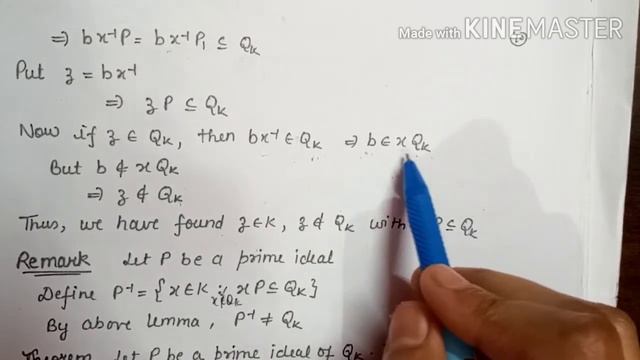 Made with KINEMASTER
⇒ bx⁻¹P = bx⁻¹P₁ ⊆ Q_K
Put z = bx⁻¹
⇒ zP ⊆ Q_K
Now if z ∈ Q_K, then bx⁻¹ ∈ Q_K ⇒ b ∈ xQ_K
But b ∉ xQ_K
⇒ z ∉ Q_K
Thus, we have found z ∈ K, z ∉ Q_K with P ⊆ Q_K
Remark Let P be a prime ideal
Define P⁻¹ = {x ∈ K if xP ⊆ Q_K}
By above lemma, P⁻¹ ≠ Q_K
Theorem Let P be a prime ideal of Q_K.